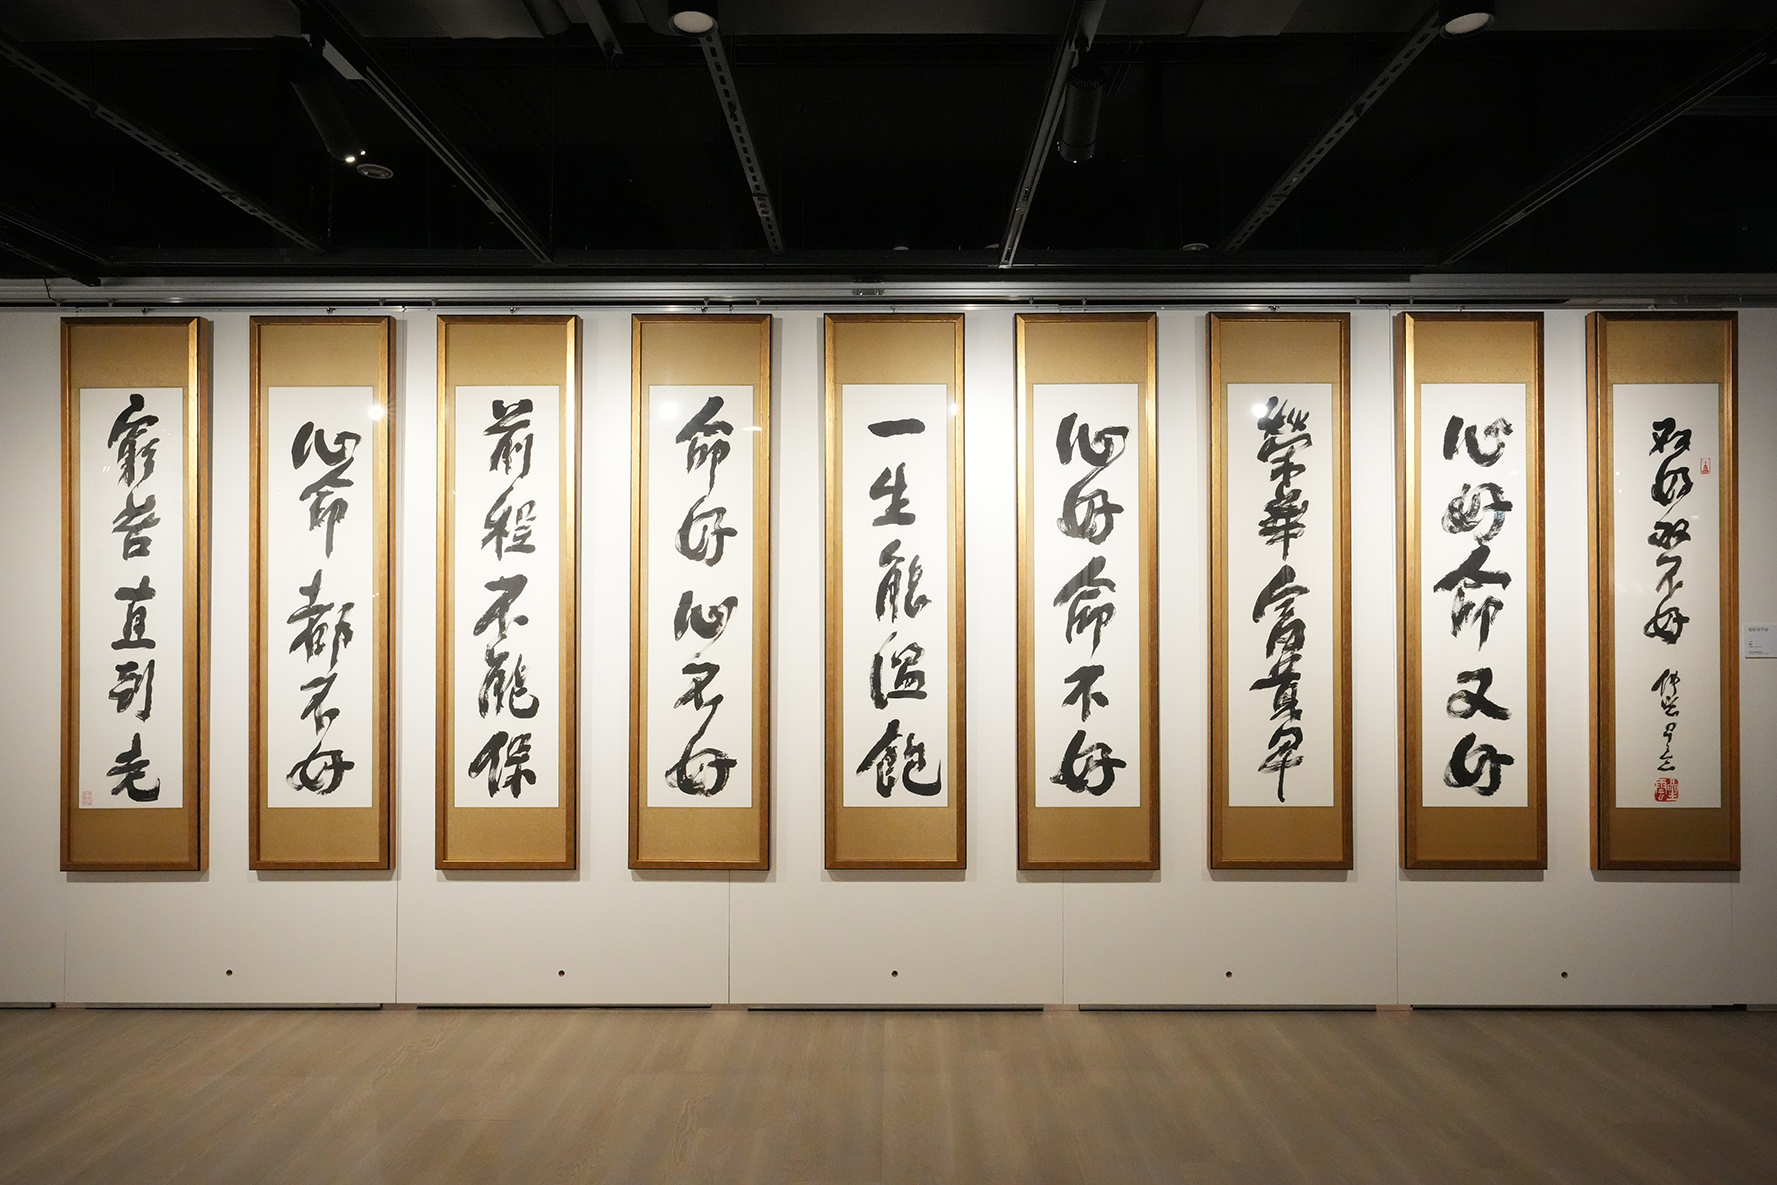 双好双不好
心好命又好
榮華富貴早
心好命不好
一生能溫飽
命好心不好
前程不能保
心命都不好
窮苦直到老